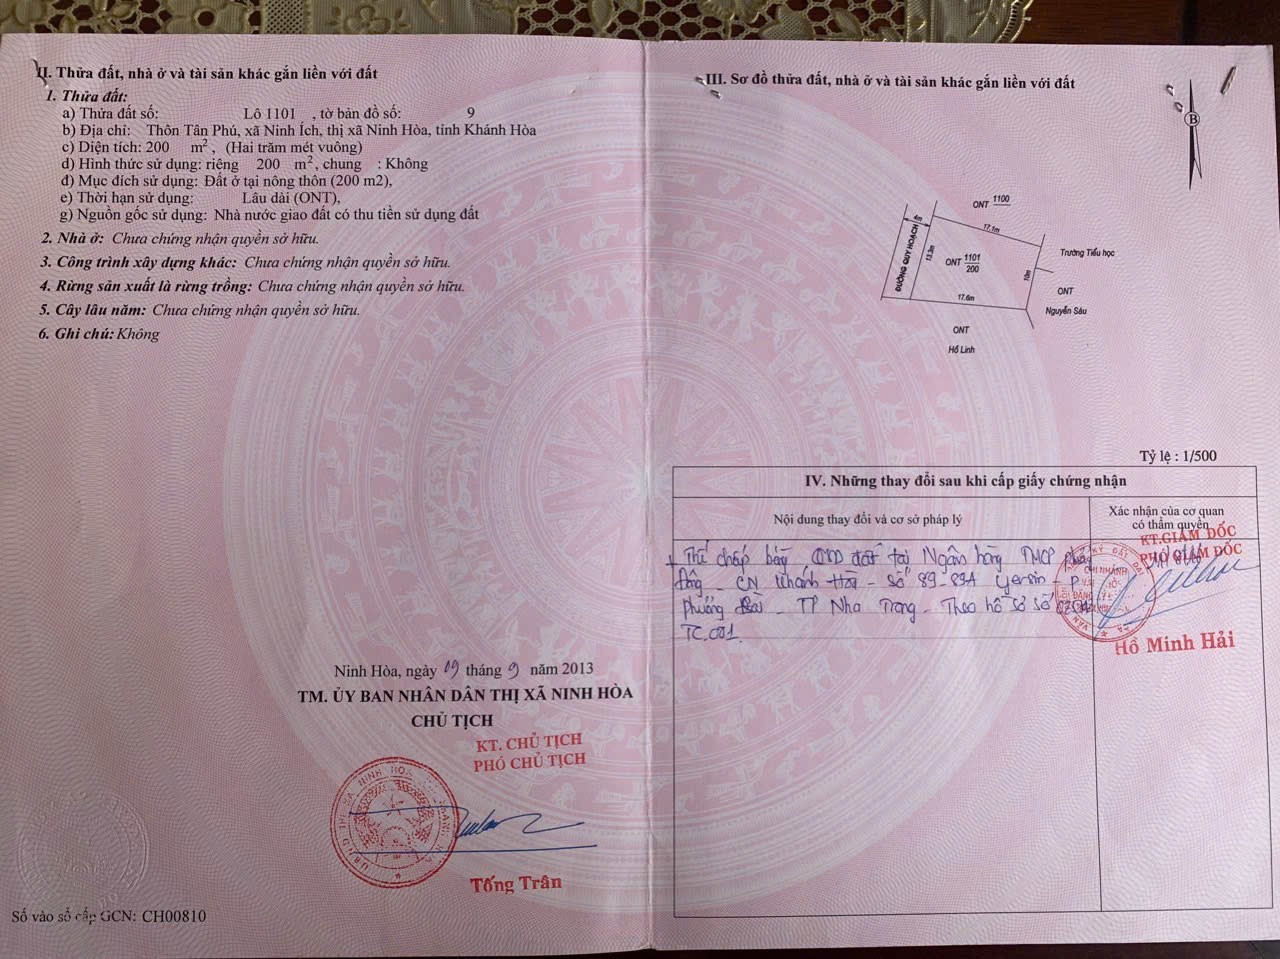 II. Thửa đất, nhà ở và tài sản khác gắn liền với đất
1. Thửa đất:
a) Thửa đất số: Lô 1101 , tờ bản đồ số: 9
b) Địa chỉ: Thôn Tân Phú, xã Ninh Ích, thị xã Ninh Hòa, tỉnh Khánh Hòa
c) Diện tích: 200 m², (Hai trăm mét vuông)
d) Hình thức sử dụng: riêng 200 m², chung : Không
đ) Mục đích sử dụng: Đất ở tại nông thôn (200 m2),
e) Thời hạn sử dụng: Lâu dài (ONT),
g) Nguồn gốc sử dụng: Nhà nước giao đất có thu tiền sử dụng đất
2. Nhà ở: Chưa chứng nhận quyền sở hữu.
3. Công trình xây dựng khác: Chưa chứng nhận quyền sở hữu.
4. Rừng sản xuất là rừng trồng: Chưa chứng nhận quyền sở hữu.
5. Cây lâu năm: Chưa chứng nhận quyền sở hữu.
6. Ghi chú: Không
Ninh Hòa, ngày 09 tháng 9 năm 2013
TM. ỦY BAN NHÂN DÂN THỊ XÃ NINH HÒA
CHỦ TỊCH
KT. CHỦ TỊCH
PHÓ CHỦ TỊCH
Tống Trân
Số vào sổ cấp GCN: CH00810
III. Sơ đồ thửa đất, nhà ở và tài sản khác gắn liền với đất
B
ONT 1100
17.1m
ĐƯỜNG QUY HOẠCH
13.3m
ONT 1101
200
10m
Trường Tiểu học
ONT
Nguyễn Sáu
17.6m
ONT
Hồ Linh
Tỷ lệ : 1/500
IV. Những thay đổi sau khi cấp giấy chứng nhận
Nội dung thay đổi và cơ sở pháp lý
Xác nhận của cơ quan
có thẩm quyền
KT.GIÁM ĐỐC
PHÓ GIÁM ĐỐC
Thế chấp bằng QSD đất tại Ngân hàng TMCP Phương
Đông - CN Khánh Hòa - Số 89-89A Yersin - P.
Phương Sài - TP Nha Trang - Theo hồ sơ số
TC.001.
Hồ Minh Hải